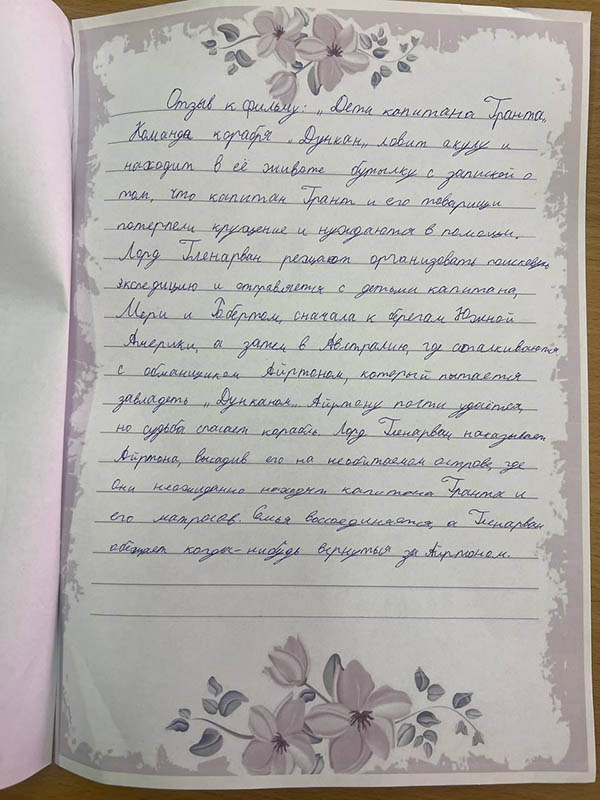 Отзыв к фильму: „Дети капитана Гранта„
Команда корабря „Дункан„ ловит акулу и
находит в её животе бутылку с запиской о
том, что капитан Грант и его товарищи
потерпели крушение и нуждаются в помощи.
Лорд Гленарван решают организовать поисковую
экспедицию и отправляется с детьми капитана,
Мери и Робертом, сначала к брегам Южной
Америки, а затем в Австралию, где сталкиваются
с обманщиком Айртоном, который пытается
завладеть „Дунканом„ Айртону почти удаётся,
но судьба спасает корабль. Лорд Гленарван наказывает
Айртона, высадив его на необитаемом острове, где
они неожиданно находят капитана Гранта и
его матросов. Семья воссоединяется, а Гленарван
обещает когда-нибудь вернуться за Айртоном.